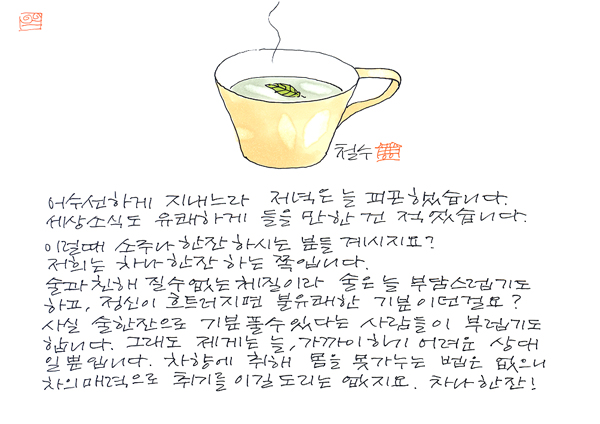 철수
어수선하게 지내느라 저녁은 늘 피곤했습니다.
세상소식도 유쾌하게 들을 만한 건 적었습니다.
이럴때 소주나 한잔 하시는 분들 계시지요?
저희는 차나 한잔 하는 쪽입니다.
술과 친해 질수 없는 체질이라 술은 늘 부담스럽기도
하고, 정신이 흐트러지면 불유쾌한 기분이던걸요?
사실 술한잔으로 기분 풀수 있다는 사람들이 부럽기도
합니다. 그래도 제게는 늘, 가까이 하기 어려운 상대
일뿐입니다. 차향에 취해 몸을 못가누는 법은 없으니
차의 매력으로 취기를 이길 도리는 없지요. 차나 한잔!